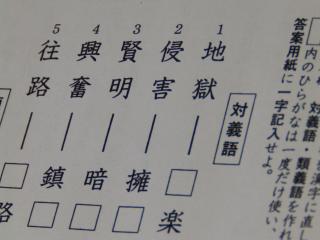 を漢字に直し
対義語・類義語を作れ
内のひらがなは一度だけ使い、
答案用紙に一字記入せよ。
対義語
1 地獄―□楽
2 侵害―擁□
3 賢明―暗□
4 興奮―鎮□
5 往路―□路